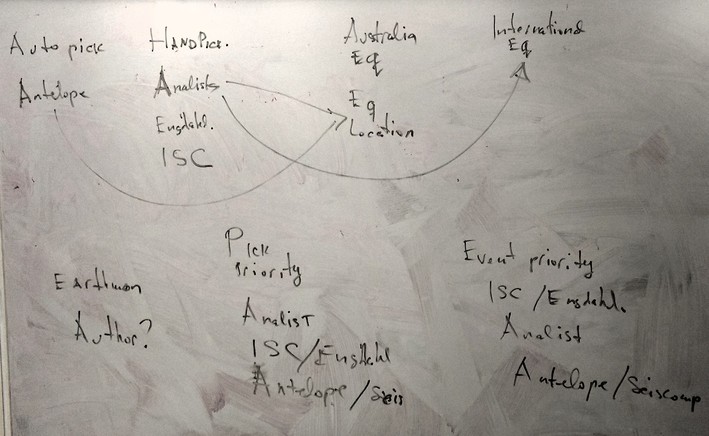 Auto pick
Antelope
HANDPick.
Analists
Engdahl.
ISC
Australia
Eq
Eq
Location
International
Eq
Earthmon
Author?
Pick
priority
Analist
ISC/Engdahl
Antelope/Seis
Event priority
ISC/Engdahl.
Analist
Antelope/Seiscomp